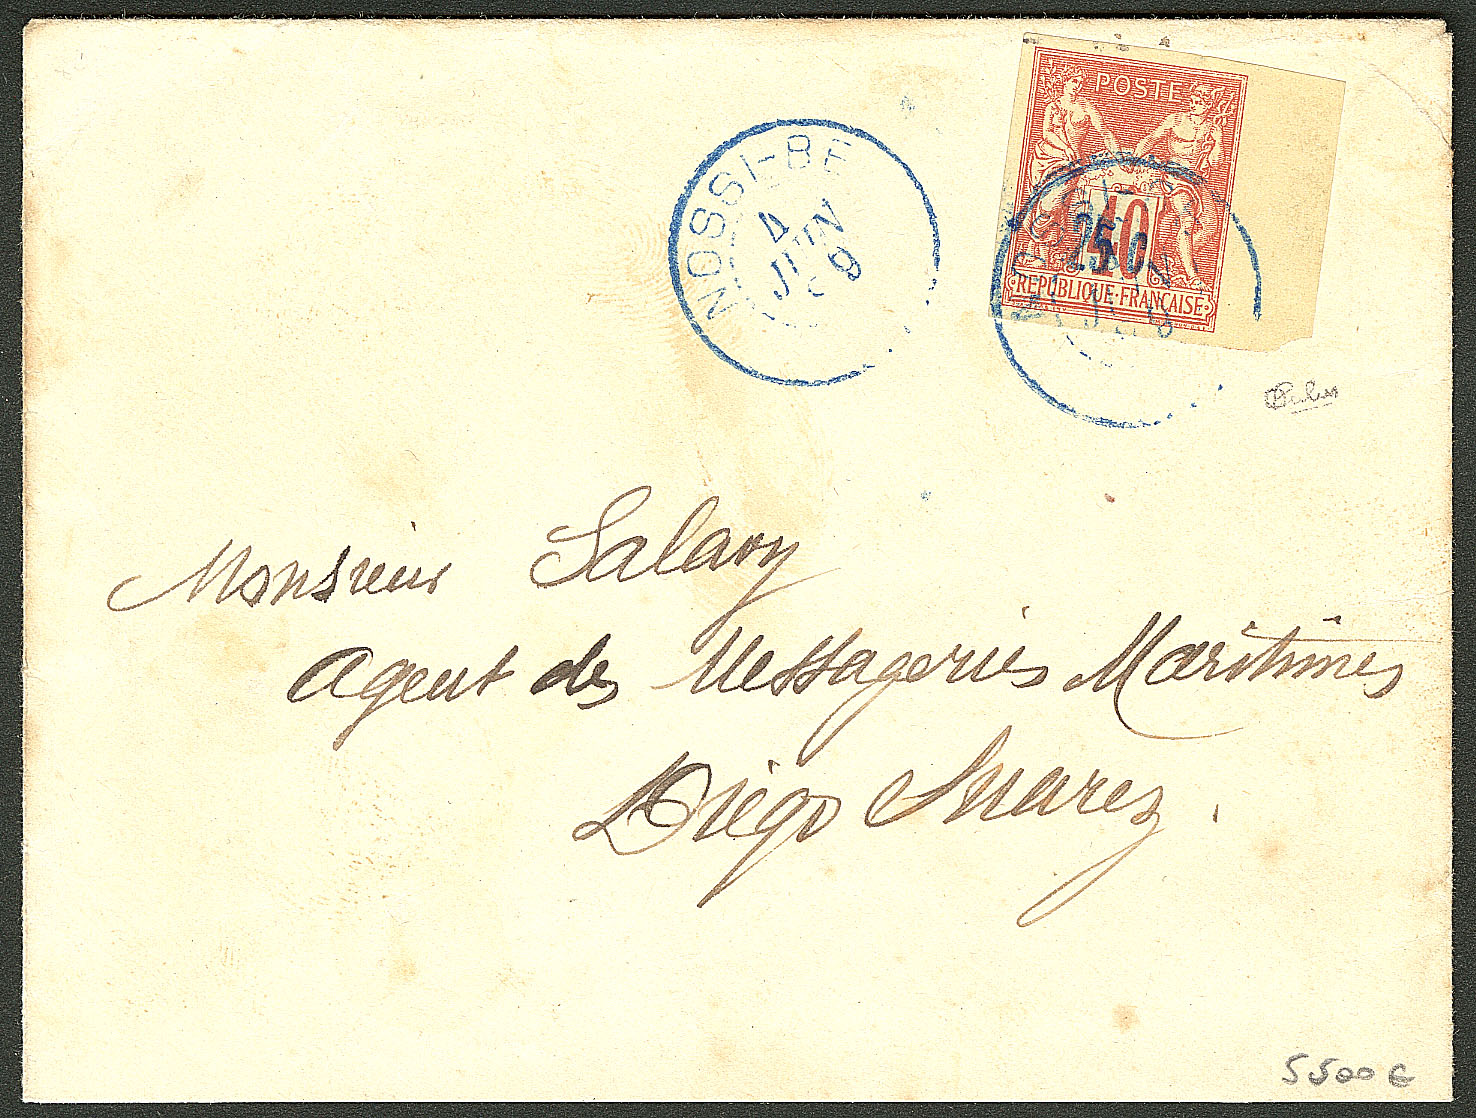 POSTE
40
25 c
REPUBLIQUE·FRANÇAISE
NOSSI-BE
4
JUIN
89
Monsieur Salavy
Agent des Messageries Maritimes
Diégo Suarez.
5500 €